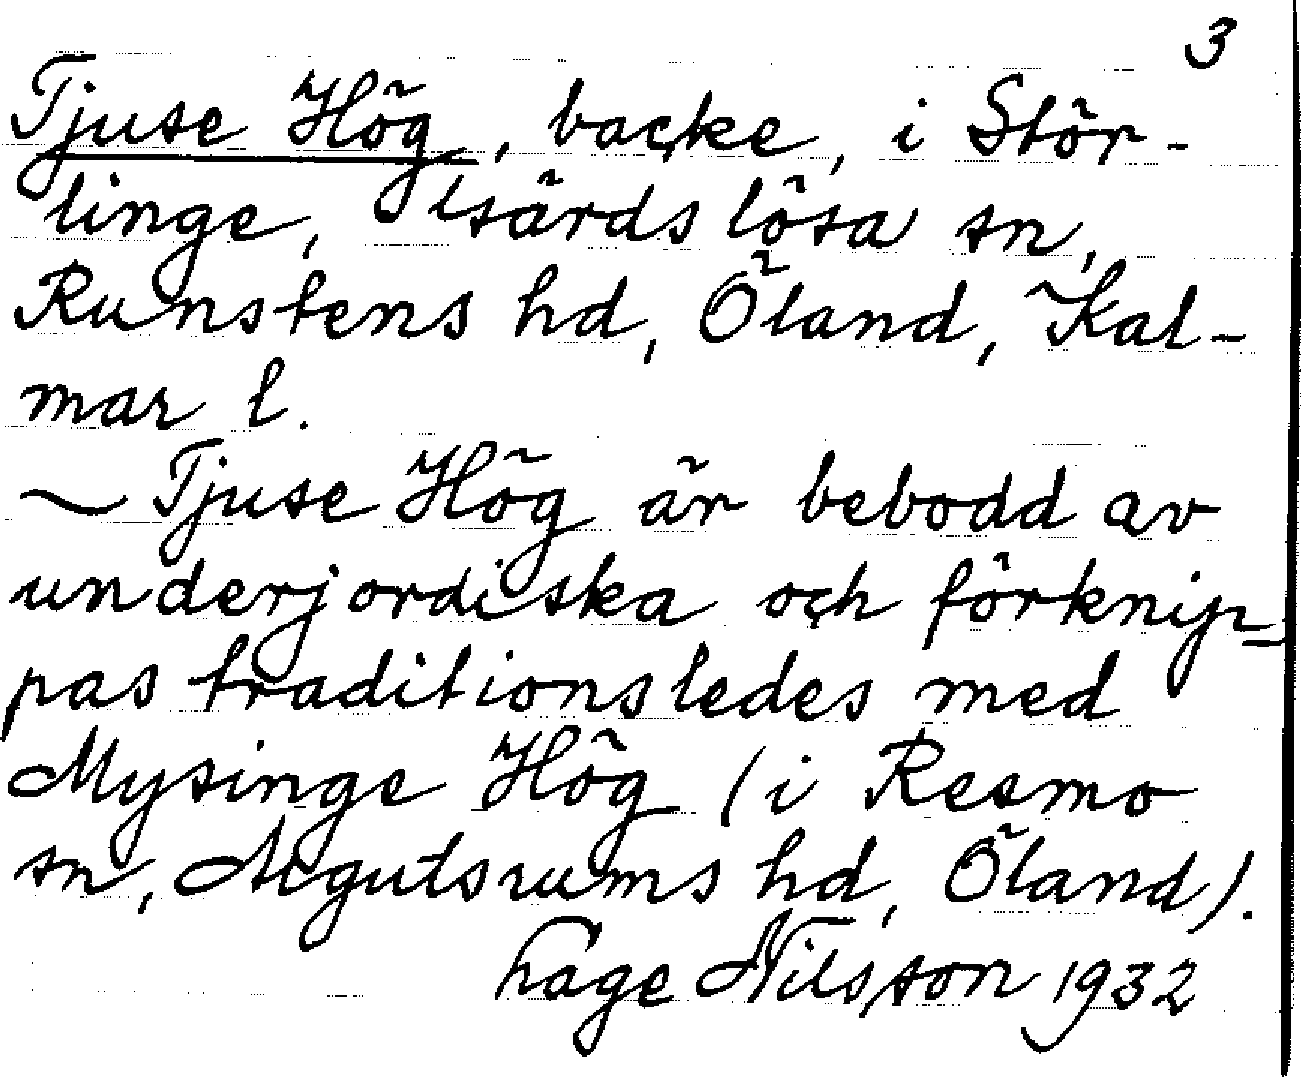 3
Tjuse Hög, backe, i Stör-
linge, Gärdslösa sn,
Runstens hd, Öland, Kal-
mar l.
~ Tjuse Hög är bebodd av
underjordiska och förknip=
pas traditionsledes med
Mysinge Hög (i Resmo
sn, Algutsrums hd, Öland).
Tage Nilsson 1932